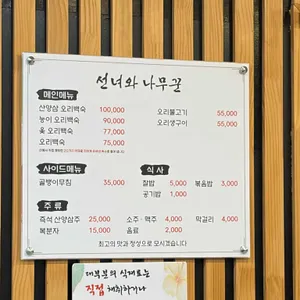 선녀와 나무꾼
메인메뉴
산양삼 오리백숙 100,000
능이 오리백숙 90,000
옻 오리백숙 77,000
오리백숙 75,000
오리불고기 55,000
오리생구이 55,000
사이드메뉴
골뱅이무침 35,000
식 사
찰밥 5,000 볶음밥 3,000
공기밥 1,000
주 류
즉석 산양삼주 25,000 소주 · 맥주 4,000 막걸리 4,000
복분자 15,000 음료 2,000
최고의 맛과 정성으로 모시겠습니다
대부분의 식재료는
직접 채취하거나